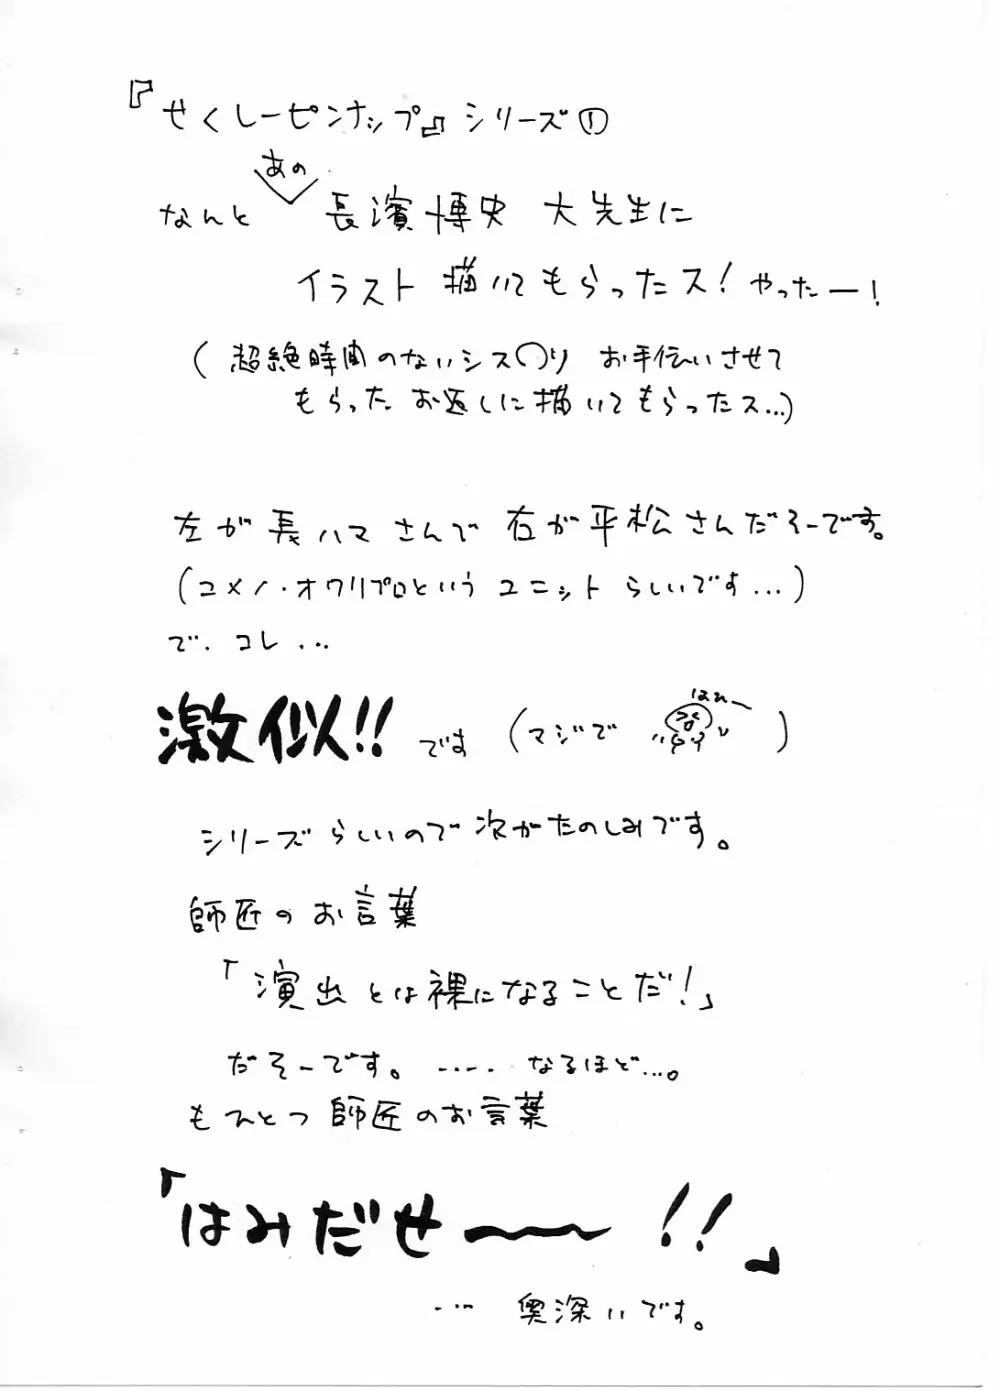 『せくしーピンナップ』シリーズ①
あの
なんと 長濱博史 大先生に
イラスト 描いてもらったス! やったー!
(超絶時間のないシス○り お手伝いさせて
もらった お返しに描いてもらったス…)
左が長ハマさんで 右が平松さんだそーです。
(ユメノ・オワリプロという ユニット らしいです…)
で、コレ…
激似!! です (マジで はれー )
シリーズらしいので次がたのしみです。
師匠のお言葉
「演出とは裸になることだ!」
だそーです。 ‥‥ なるほど…。
もひとつ 師匠のお言葉
「はみだせ〜〜 !!」
… 奥深いです。